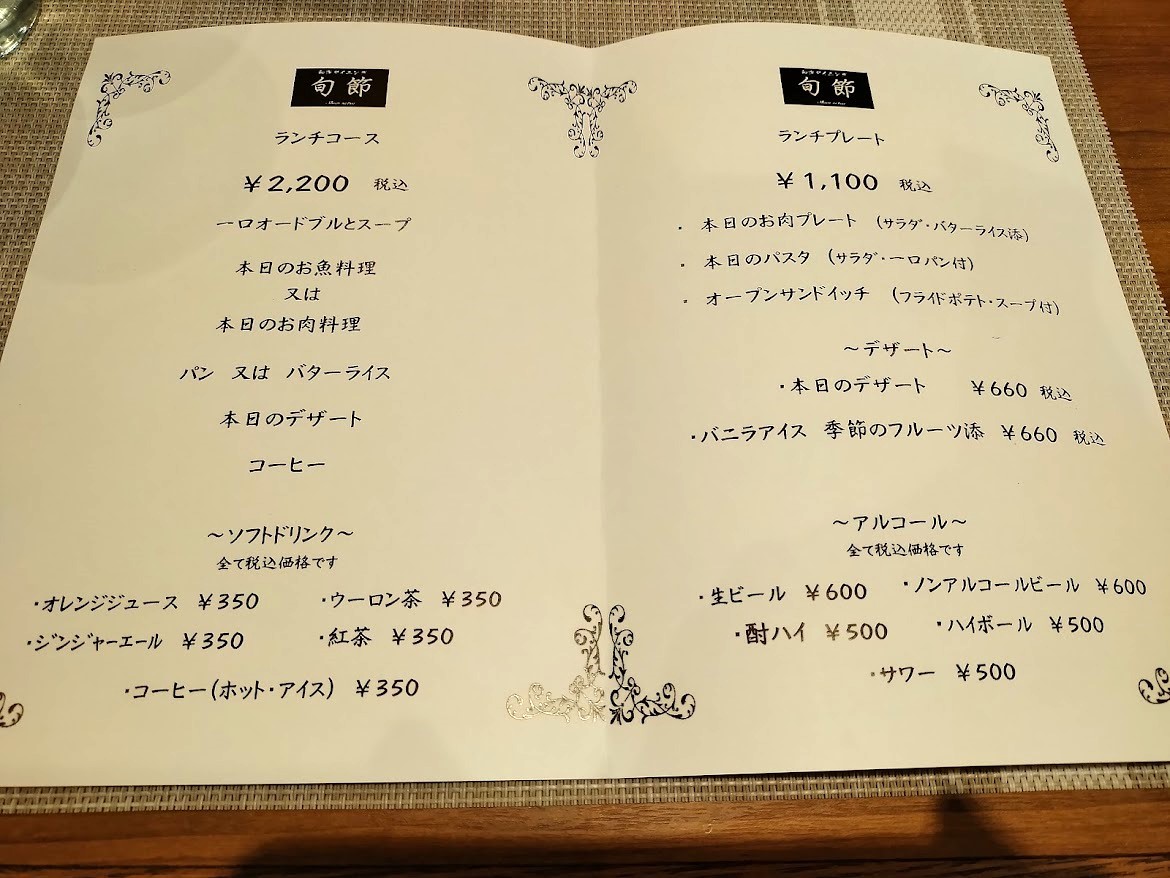 旬節
ランチコース
￥2,200 税込
一口オードブルとスープ
本日のお魚料理
又は
本日のお肉料理
パン 又は バターライス
本日のデザート
コーヒー
～ソフトドリンク～
全て税込価格です
・オレンジジュース ￥350 ・ウーロン茶 ￥350
・ジンジャーエール ￥350 ・紅茶 ￥350
・コーヒー(ホット・アイス) ￥350
旬節
ランチプレート
￥1,100 税込
・ 本日のお肉プレート (サラダ・バターライス添)
・ 本日のパスタ (サラダ・一口パン付)
・ オープンサンドイッチ (フライドポテト・スープ付)
～デザート～
・本日のデザート ￥660 税込
・バニラアイス 季節のフルーツ添 ￥660 税込
～アルコール～
全て税込価格です
・生ビール ￥600 ・ノンアルコールビール ￥600
・酎ハイ ￥500 ・ハイボール ￥500
・サワー ￥500